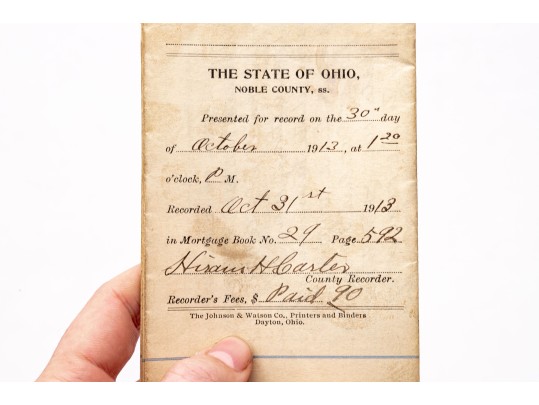 THE STATE OF OHIO,
NOBLE COUNTY, ss.
Presented for record on the 30" day
of October 1913, at 1 20
o'clock, P M.
Recorded Oct 31st 1913
in Mortgage Book No. 29 Page 592
Hiram H Carter
County Recorder.
Recorder's Fees, $ Paid 90
The Johnson & Watson Co., Printers and Binders
Dayton, Ohio.